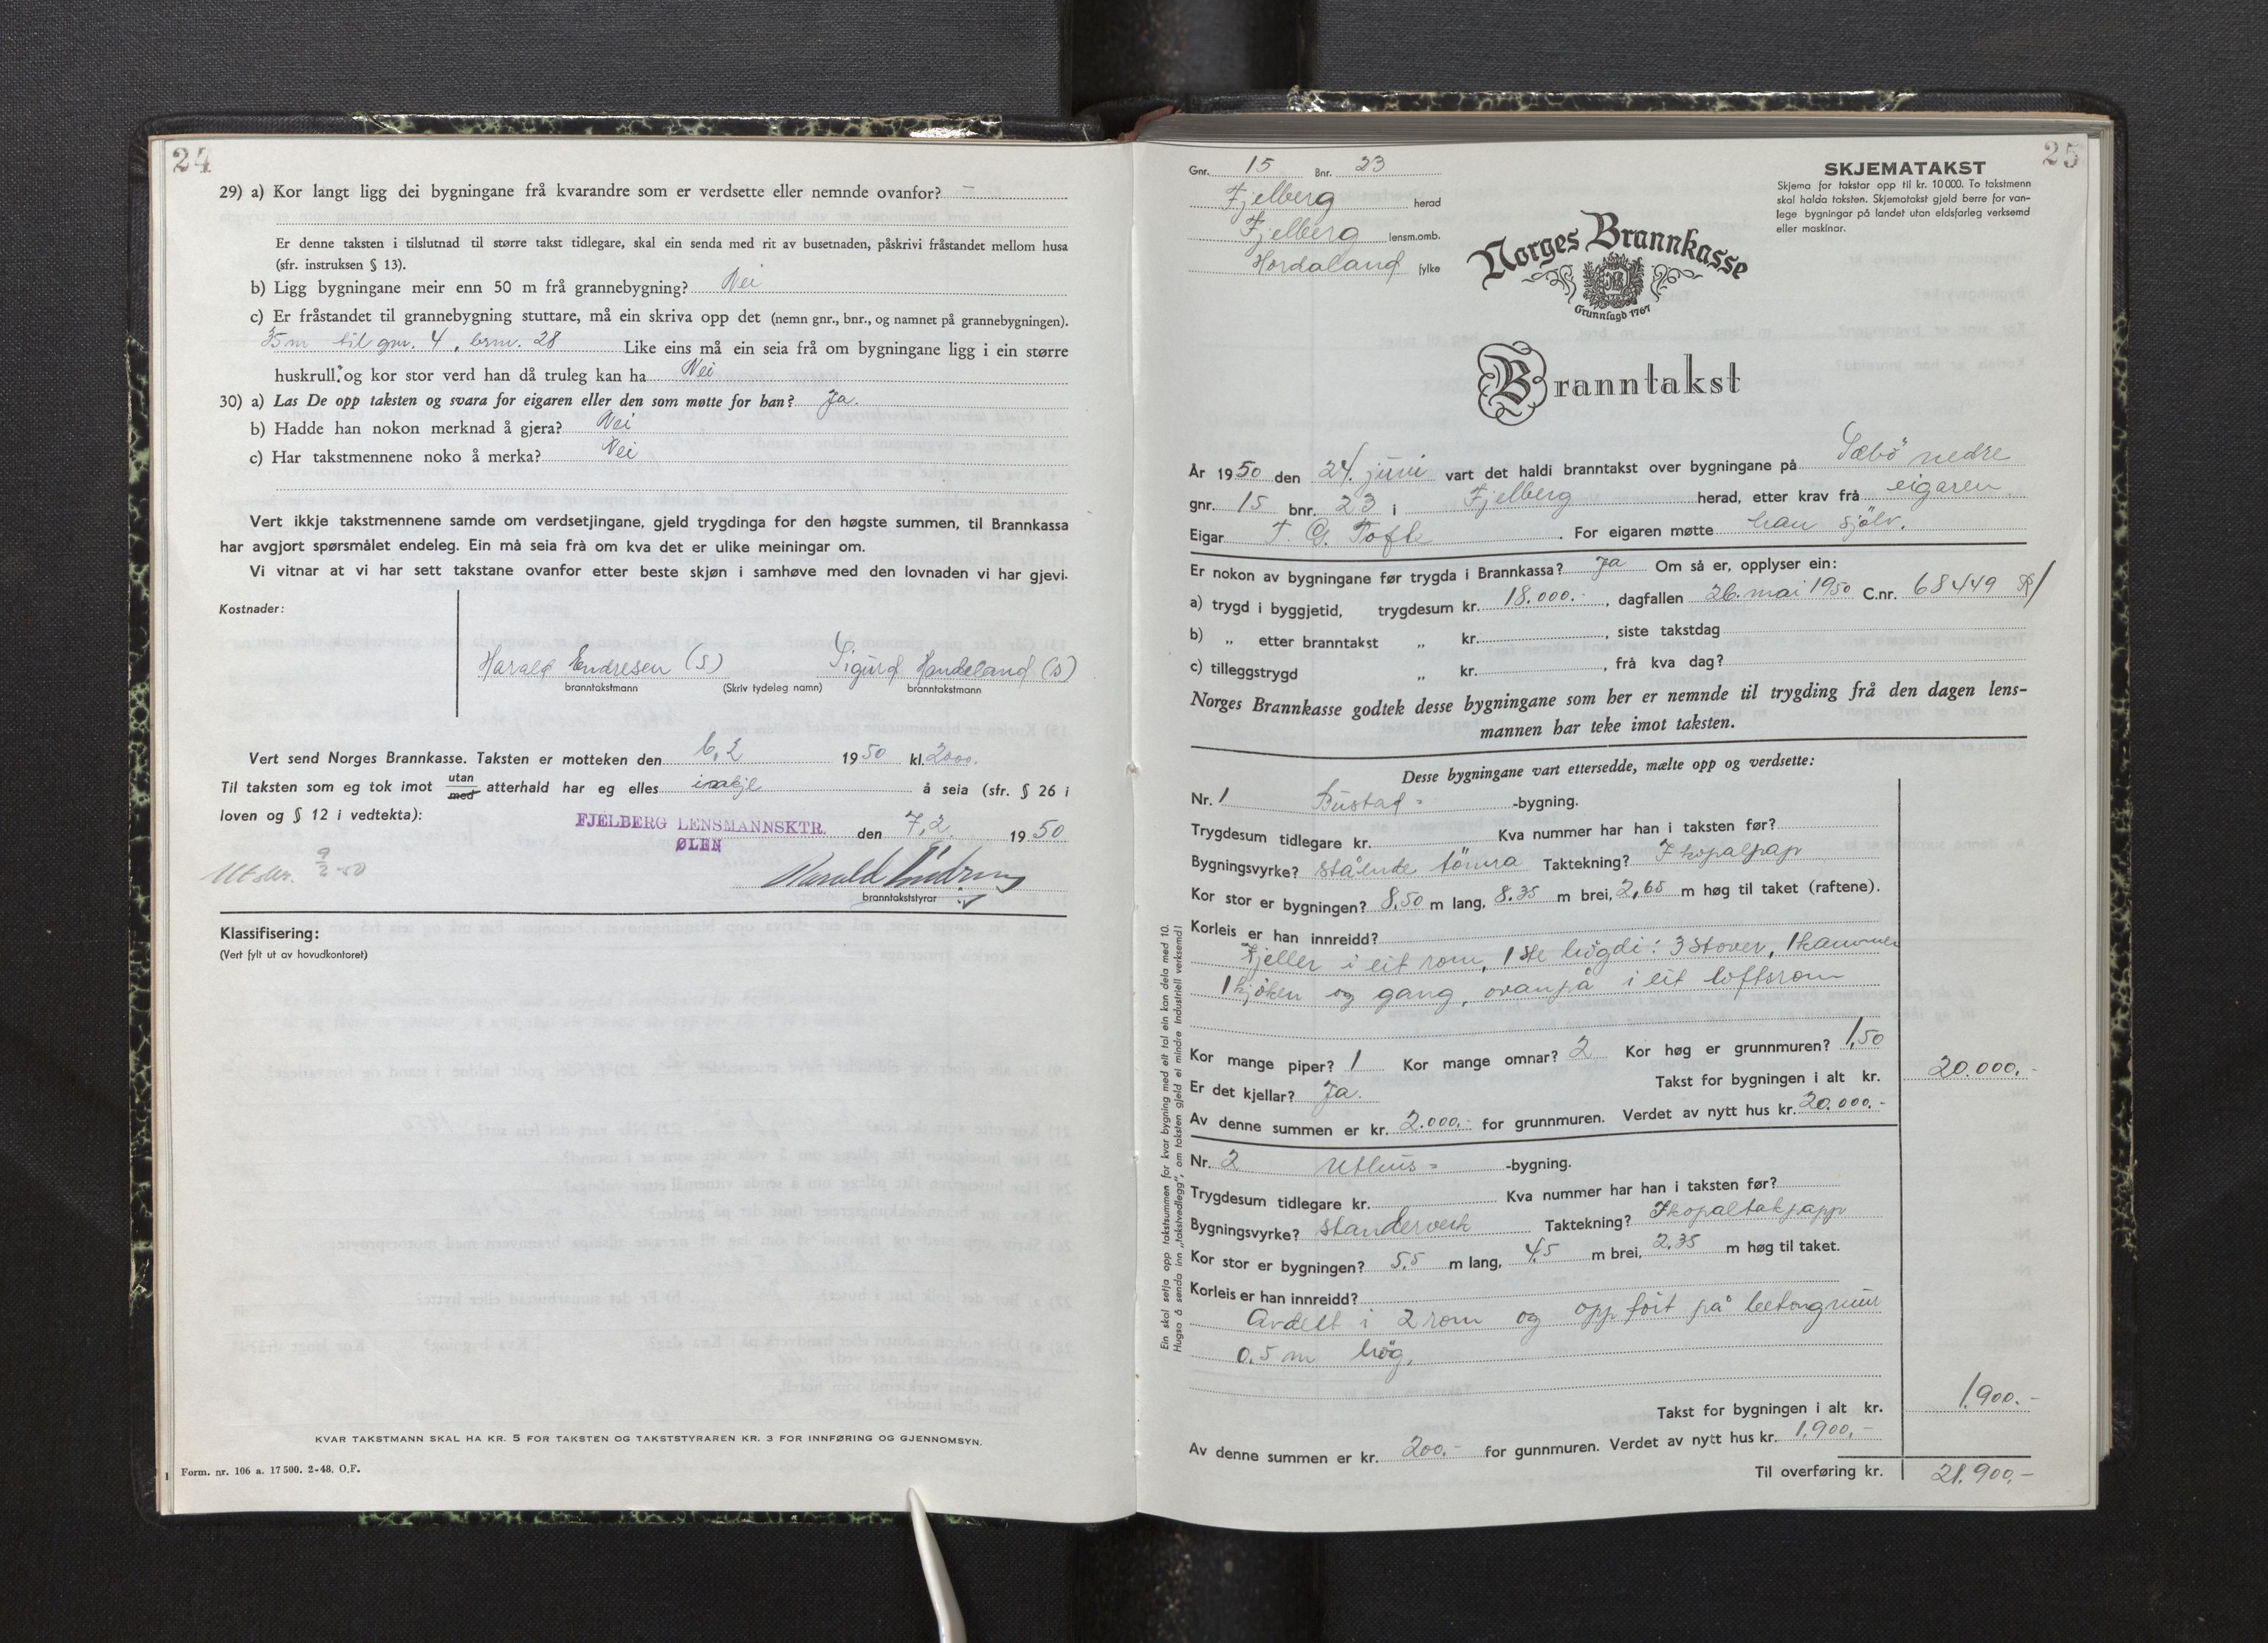 24
29) a) Kor langt ligg dei bygningane frå kvarandre som er verdsette eller nemnde ovanfor? –
Er denne taksten i tilslutnad til større takst tidlegare, skal ein senda med rit av busetnaden, påskrivi fråstandet mellom husa
(sfr. instruksen § 13).
b) Ligg bygningane meir enn 50 m frå grannebygning? Nei
c) Er fråstandet til grannebygning stuttare, må ein skriva opp det (nemn gnr., bnr., og namnet på grannebygningen).
35 m til gnr. 4, bnr. 28 Like eins må ein seia frå om bygningane ligg i ein større
huskrull, og kor stor verd han då truleg kan ha Nei
30) a) Las De opp taksten og svara for eigaren eller den som møtte for han? Ja.
b) Hadde han nokon merknad å gjera? Nei
c) Har takstmennene noko å merka? Nei
Vert ikkje takstmennene samde om verdsetjingane, gjeld trygdinga for den høgste summen, til Brannkassa
har avgjort spørsmålet endeleg. Ein må seia frà om kva det er ulike meiningar om.
Vi vitnar at vi har sett takstane ovanfor etter beste skjøn i samhøve med den lovnaden vi har gjevi.
Kostnader:
Harald Endresen (s) Sigurd Handeland (s)
branntakstmann (Skriv tydeleg namn) branntakstmann
Vert send Norges Brannkasse. Taksten er motteken den 6,2 1950 kl. 2000.
Til taksten som eg tok imot utan med atterhald har eg elles å seia (sfr. § 26 i
loven og § 12 i vedtekta):
FJELBERG LENSMANNSKTR. den 7,2. 1950
ØLEN
Utskr. 9/2-50
Harald Endresen
branntakststyrar
Klassifisering:
(Vert fylt ut av hovudkontoret)
KVAR TAKSTMANN SKAL HA KR. 5 FOR TAKSTEN OG TAKSTSTYRAREN KR. 3 FOR INNFØRING OG GJENNOMSYN.
1 Form. nr. 106 a. 17500. 2-48. O.F.
25
Gnr. 15 Bnr. 23
Fjelberg herad
Fjelberg lensm.omb.
Hordaland fylke
SKJEMATAKST
Skjema for takstar opp til kr. 10 000. To takstmenn
skal halda taksten. Skjematakst gjeld berre for van-
lege bygningar på landet utan eldsfarleg verksemd
eller maskinar.
Norges Brannkasse
Grunnlagd 1767
Branntakst
År 1950 den 24. juni vart det haldi branntakst over bygningane på Sæbö nedre
gnr. 15 bnr. 23 i Fjelberg herad, etter krav frå eigaren
Eigar T. G. Tofte. For eigaren møtte han sjölv.
Er nokon av bygningane før trygda i Brannkassa? Ja Om så er, opplyser ein:
a) trygd i byggjetid, trygdesum kr. 18.000.-, dagfallen 26. mai 1950 C.nr. 68449
b) „ etter branntakst „ kr. , siste takstdag
c) tilleggstrygd „ kr. , frå kva dag?
Norges Brannkasse godtek desse bygningane som her er nemnde til trygding frå den dagen lens-
mannen har teke imot taksten.
Desse bygningane vart ettersedde, mælte opp og verdsette:
Nr. 1 Bustad- -bygning.
Trygdesum tidlegare kr. Kva nummer har han i taksten før?
Bygningsvyrke? stående tömra Taktekning? Ikopalpap
Kor stor er bygningen? 8.50 m lang, 8.35 m brei, 2,65 m høg til taket (raftene).
Korleis er han innreidd?
Kjeller i eit rom, 1ste högdi: 3 stover, 1 kammer
1 kjöken og gang, ovanpå i eit loftsrom
Kor mange piper? 1 Kor mange omnar? 2 Kor høg er grunnmuren? 1,50
Er det kjellar? Ja. Takst for bygningen i alt kr. 20.000,-
Av denne summen er kr. 2.000,- for grunnmuren. Verdet av nytt hus kr. 20.000.-
Nr. 2 Uthus- -bygning.
Trygdesum tidlegare kr. Kva nummer har han i taksten før?
Bygningsvyrke? standerverk Taktekning? Ikopaltakpapp
Kor stor er bygningen? 5.5 m lang, 4,5 m brei, 2.35 m høg til taket.
Korleis er han innreidd?
Avdelt i 2 rom og oppfört på betongmur
0.5 m hög.
Takst for bygningen i alt kr. 1.900.-
Av denne summen er kr. 200,- for gunnmuren. Verdet av nytt hus kr. 1.900,-
Til overføring kr. 21.900,-
Ein skal setja opp takstsummen for kvar bygning med eit tal ein kan dela med 10.
Hugsa å senda inn „takstvedlegg”, om taksten gjeld ei mindre industriell verksemd!